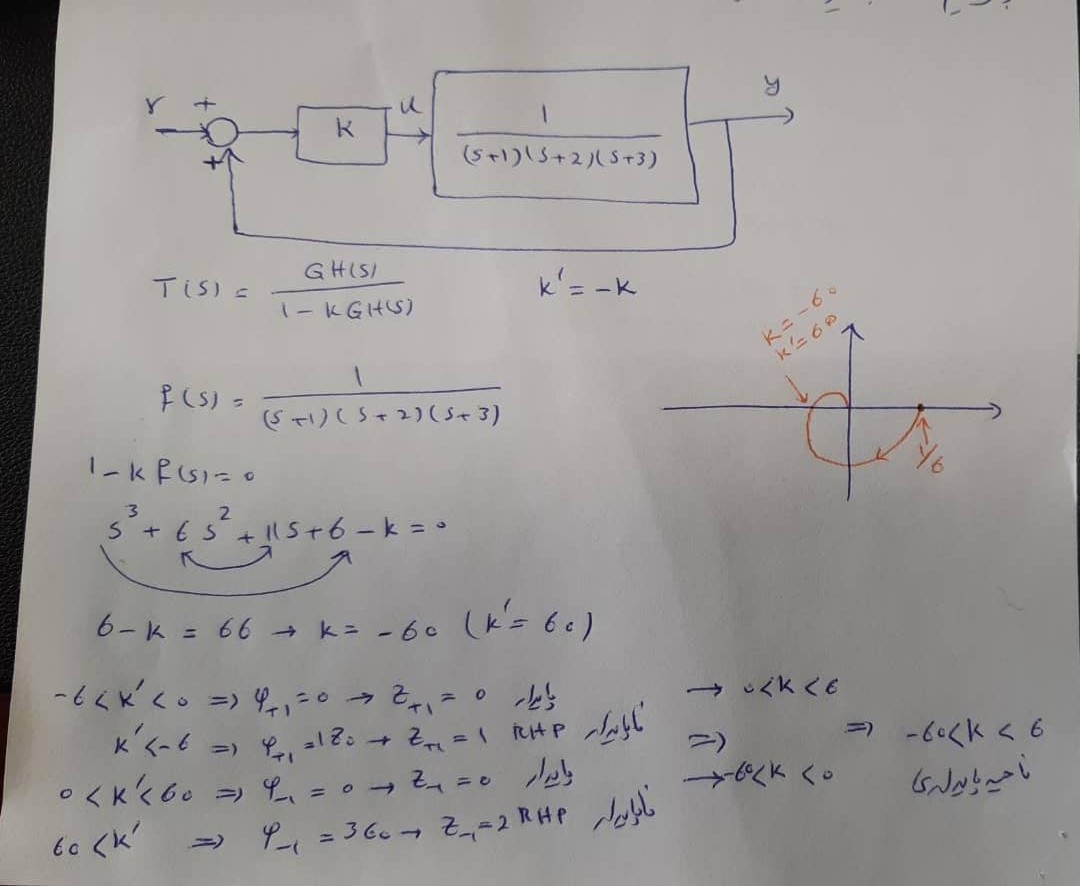 r + + K u 1 / (s+1)(s+2)(s+3) y
T(s) = GH(s) / 1 - KGH(s)    k' = -k
k = -60
k' = 60
f(s) = 1 / (s+1)(s+2)(s+3)
1/6
1 - k f(s) = 0
s³ + 6s² + 11s + 6 - k = 0
6 - k = 66 → k = -60 (k' = 60)
-6 < k' < 0 ⇒ φ₊₁ = 0 → Z₊₁ = 0 پایدار → 0 < k < 6
k' < -6 ⇒ φ₊₁ = 180 → Z₊₁ = 1 RHP ناپایدار ⇒ ⇒ -60 < k < 6
0 < k' < 60 ⇒ φ₋₁ = 0 → Z₋₁ = 0 پایدار → -60 < k < 0 ناحیه پایداری
60 < k' ⇒ φ₋₁ = 360 → Z₋₁ = 2 RHP ناپایدار